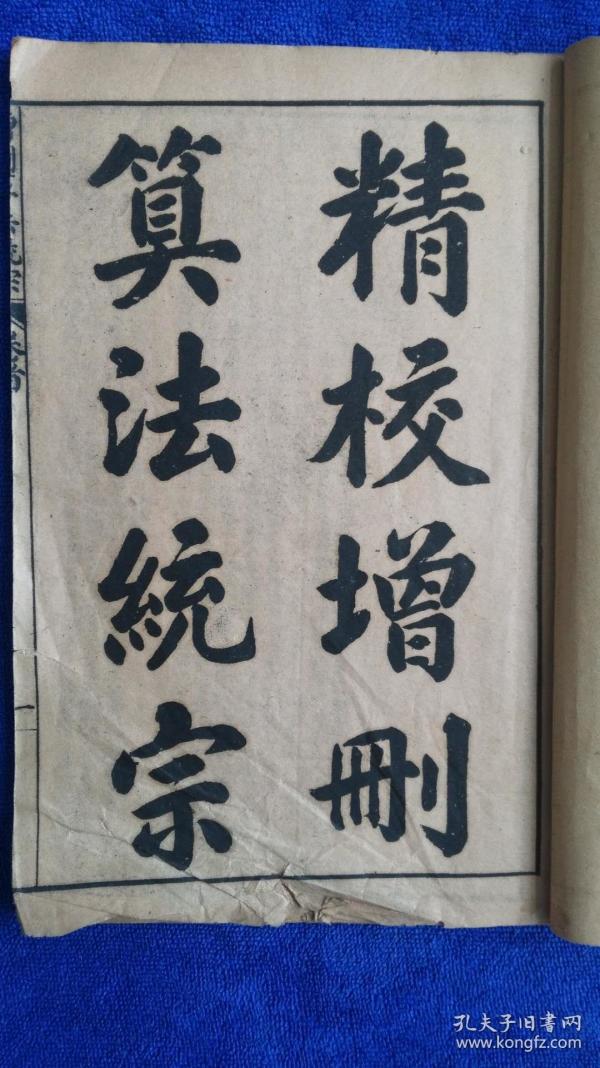 精校增刪
算法統宗
孔夫子旧書网
www.kongfz.com